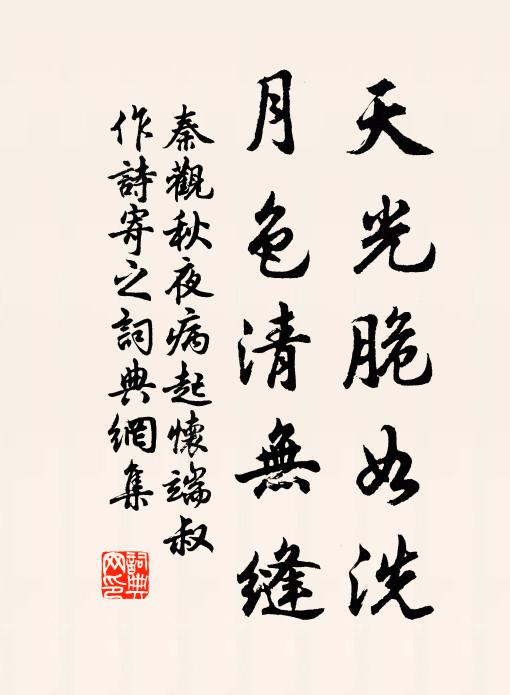 天光脆如洗
月色清無縫
秦觀秋夜病起懷端叔
作詩寄之詞典網集
詞典
网印